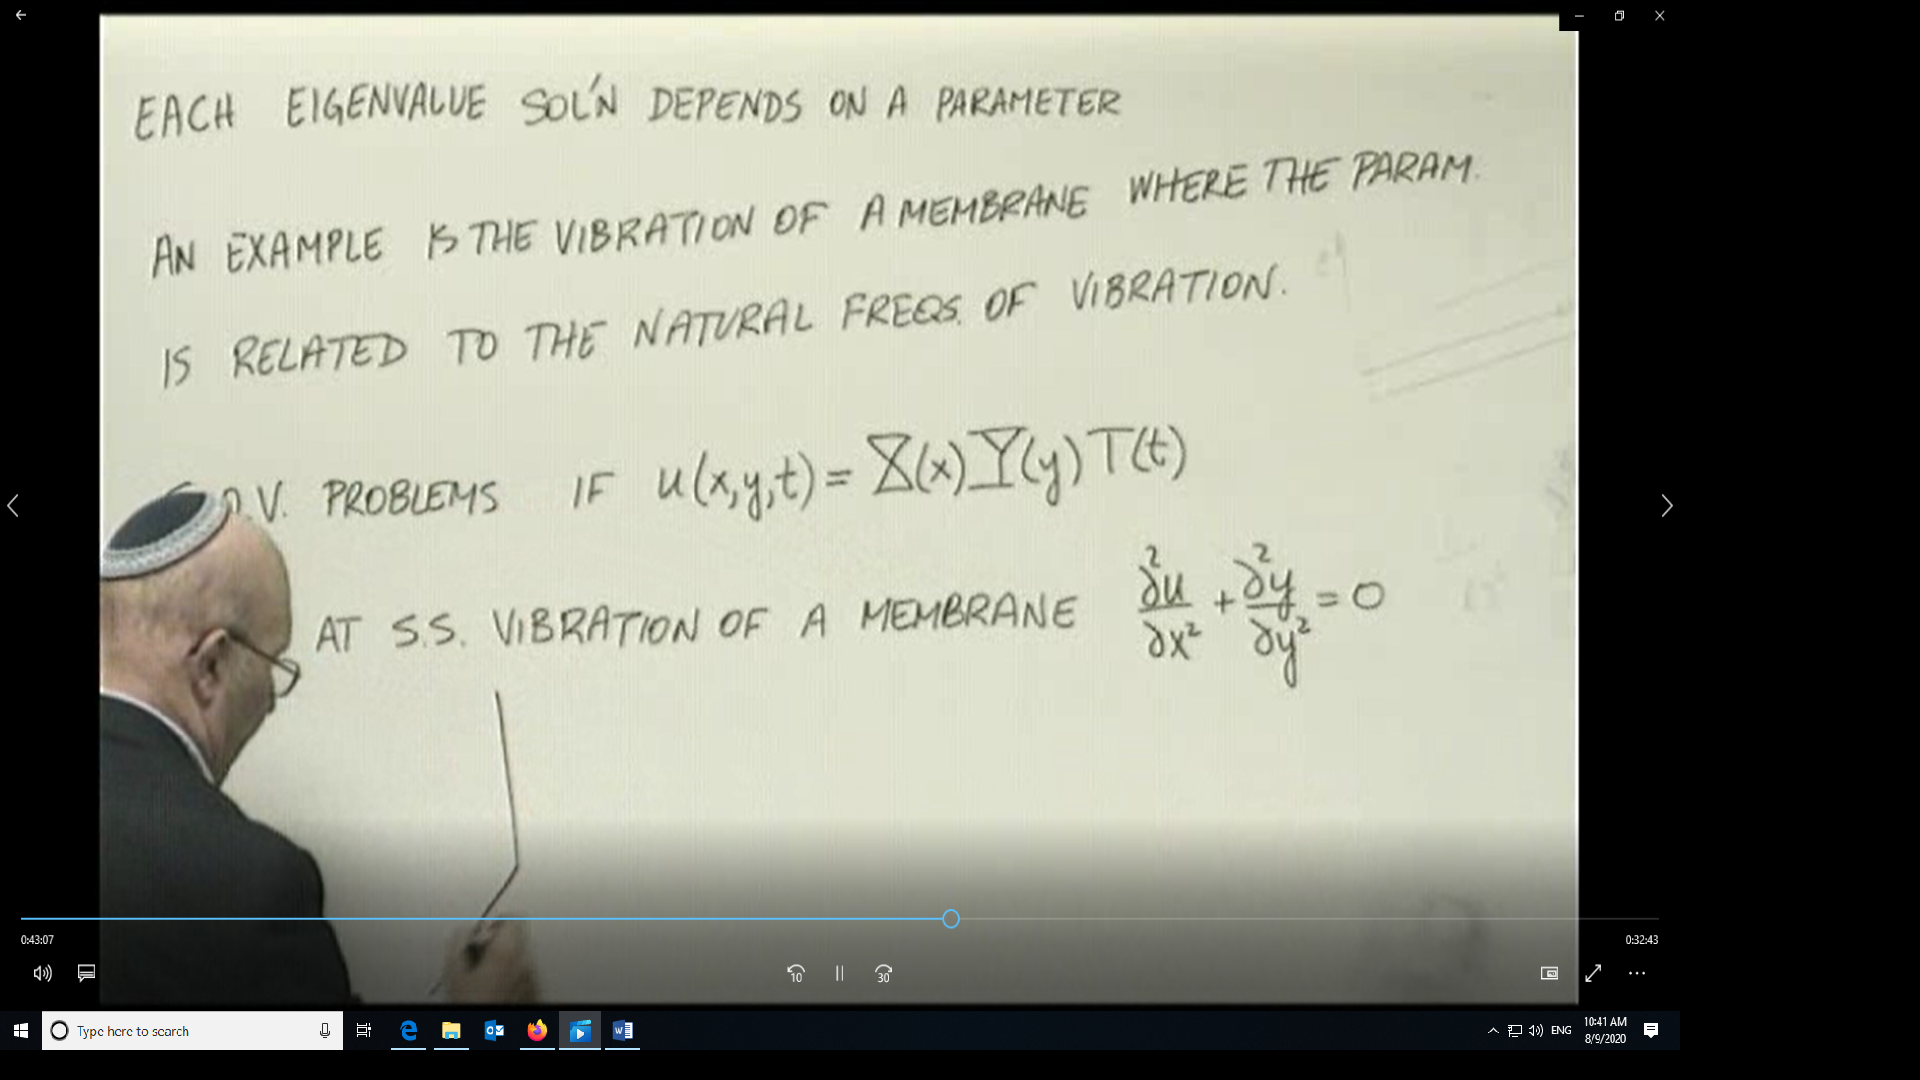 EACH EIGENVALUE SOL'N DEPENDS ON A PARAMETER
AN EXAMPLE IS THE VIBRATION OF A MEMBRANE WHERE THE PARAM.
IS RELATED TO THE NATURAL FREQS. OF VIBRATION.
V. PROBLEMS IF u(x,y,t) = X(x)Y(y)T(t)
AT S.S. VIBRATION OF A MEMBRANE ∂²u/∂x² + ∂²y/∂y² = 0
0:43:07
0:32:43
10
30
Type here to search
ENG
10:41 AM
8/9/2020